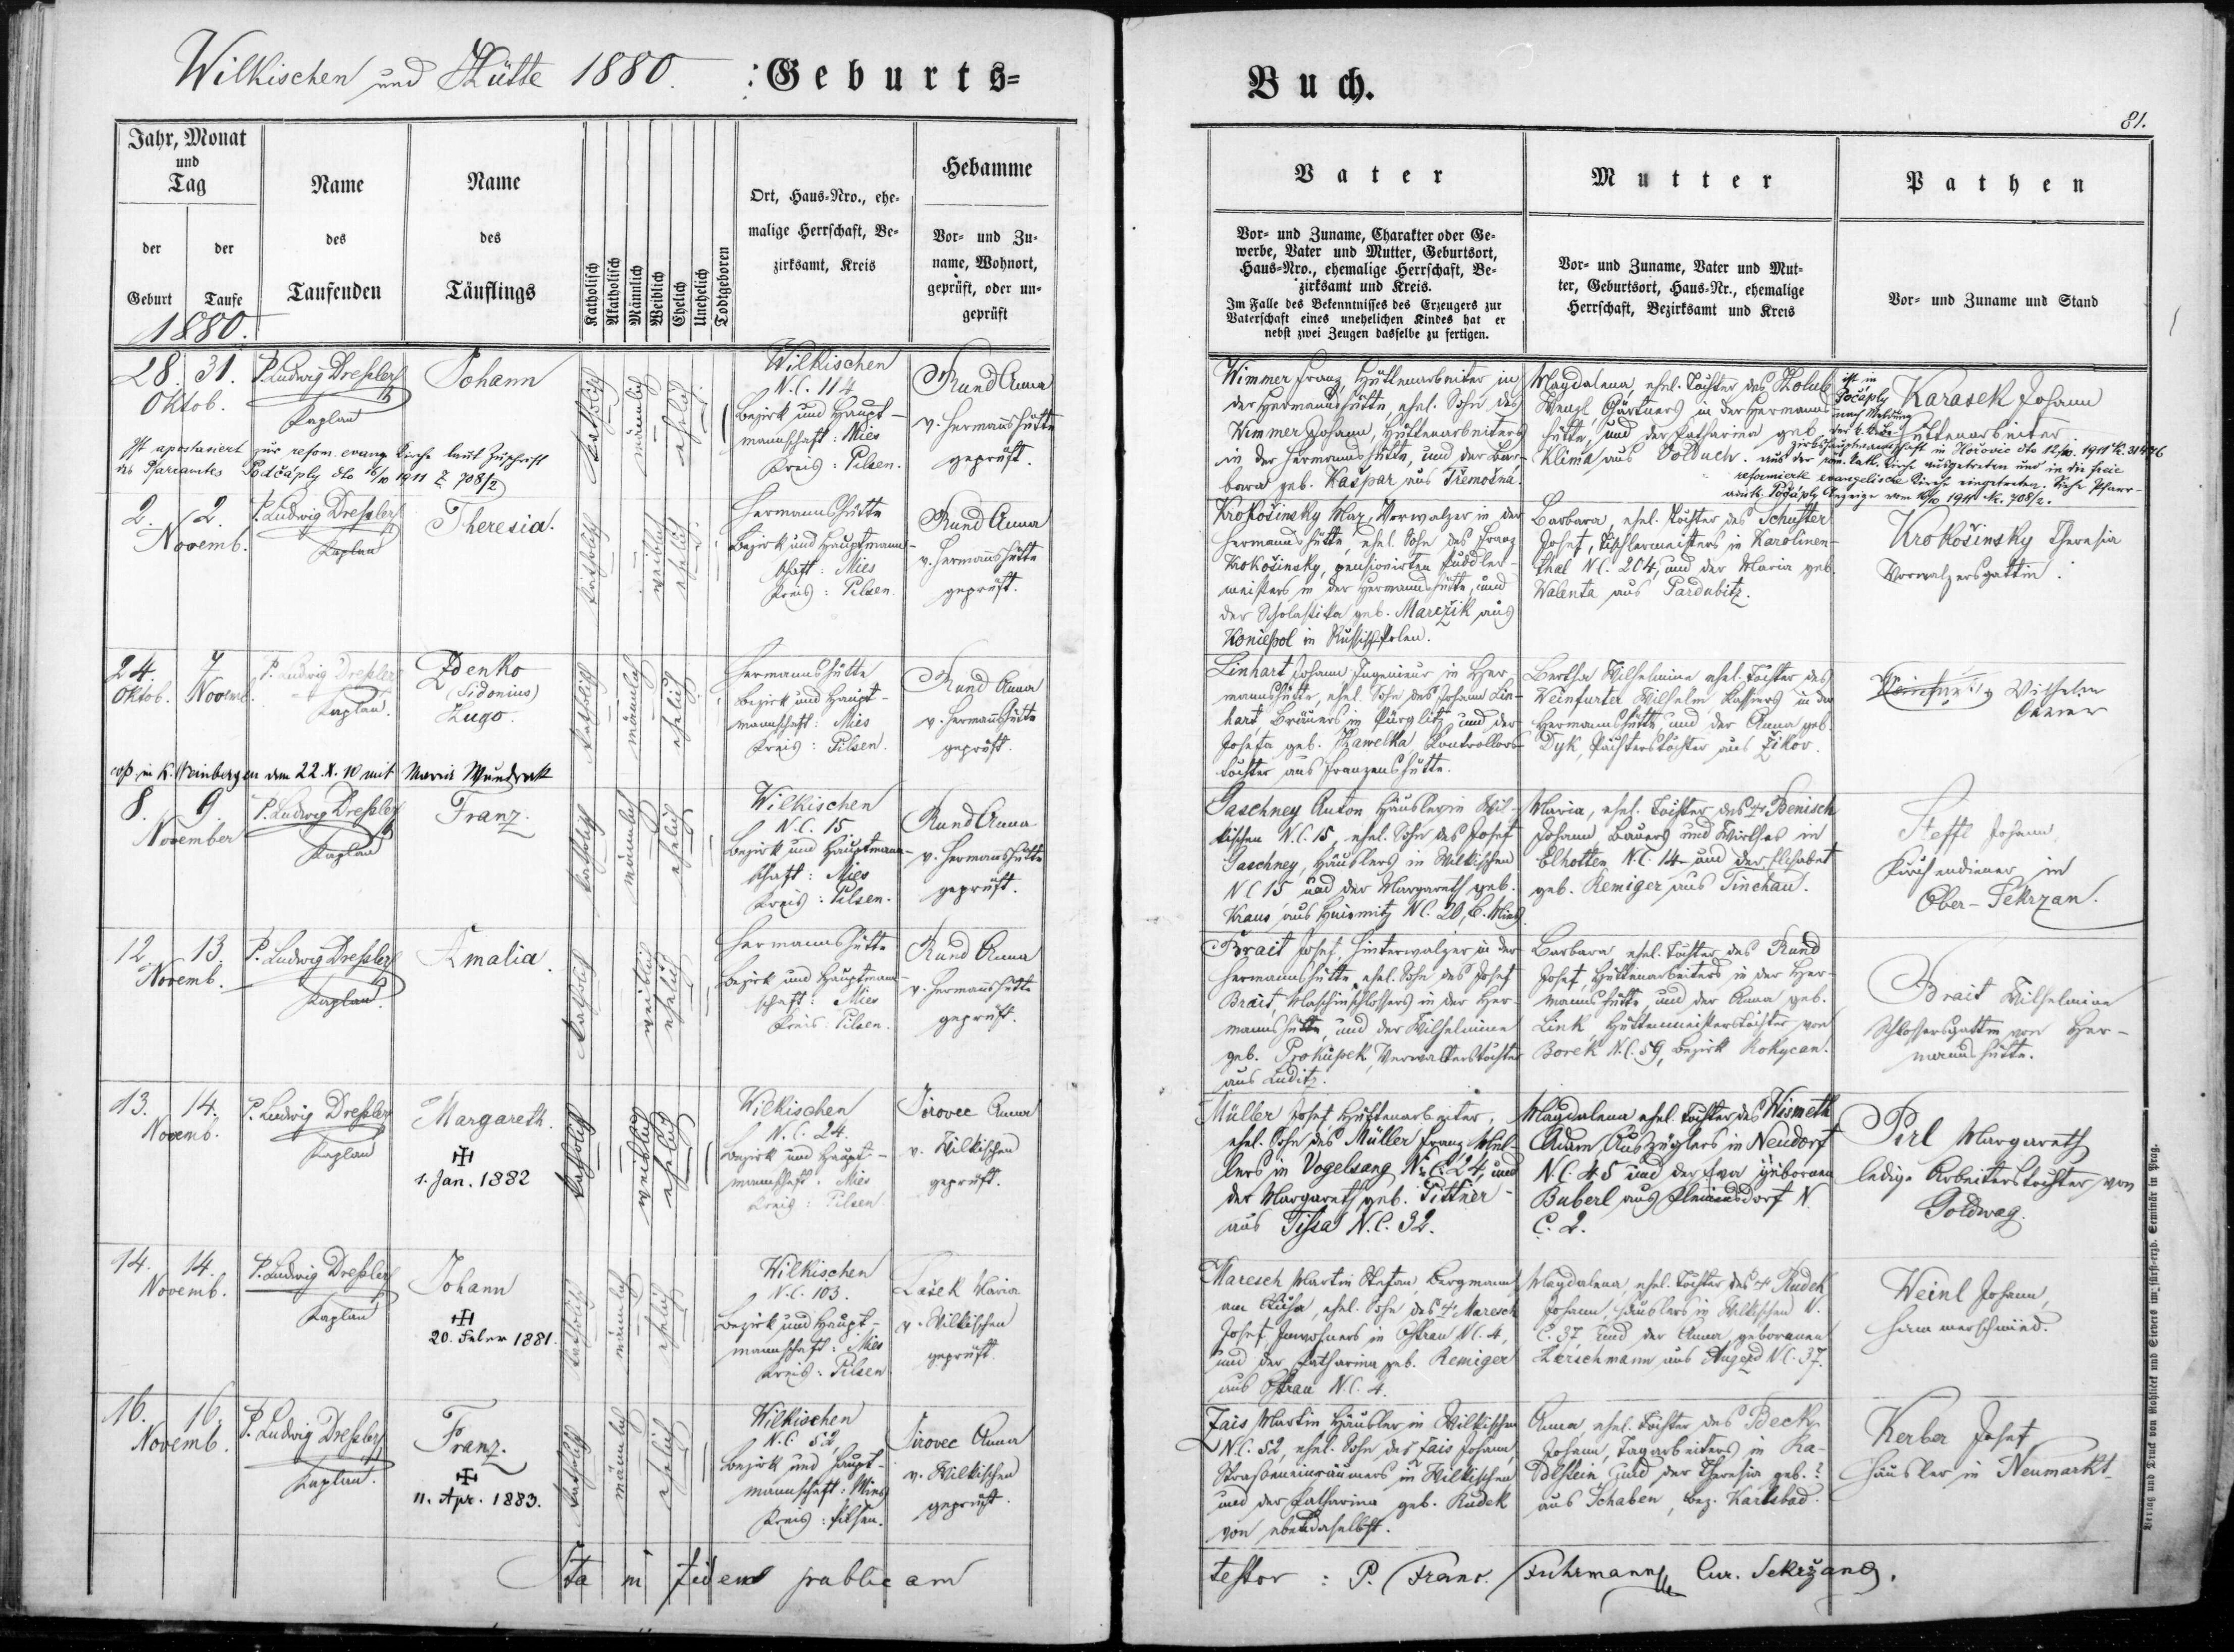 Wilkischen und Hütte 1880. Geburts=
Buch.
81.
Jahr, Monat
und
Tag
der
Geburt
der
Taufe
1880.
Name
des
Taufenden
Name
des
Täuflings
Katholisch
Akatholisch
Männlich
Weiblich
Ehelich
Unehelich
Todtgeboren
Ort, Haus=Nro., ehe=
malige Herrschaft, Be=
zirksamt, Kreis
Hebamme
Vor= und Zu=
name, Wohnort,
geprüft, oder un=
geprüft
Vater
Vor= und Zuname, Charakter oder Ge=
werbe, Vater und Mutter, Geburtsort,
Haus=Nro., ehemalige Herrschaft, Be=
zirksamt und Kreis.
Im Falle des Bekenntnisses des Erzeugers zur
Vaterschaft eines unehelichen Kindes hat er
nebst zwei Zeugen dasselbe zu fertigen.
Mutter
Vor= und Zuname, Vater und Mut=
ter, Geburtsort, Haus=Nr., ehemalige
Herrschaft, Bezirksamt und Kreis
Pathen
Vor= und Zuname und Stand
28. 31.
Oktob.
P. Ludwig Dreßler
Kaplan
Johann
katholisch
männlich
ehelich
Wilkischen
N.C. 114
Bezirk und Haupt-
mannschaft: Mies
Kreis: Pilsen.
Rund Anna
v. Hermannshütte
geprüft.
Wimmer Franz Hüttenarbeiter in
der Hermannshütte, ehel. Sohn des
Wimmer Johann, Hüttenarbeiters
in der Hermannshütte, und der Bar-
bara geb. Kašpar aus Třemošna.
Magdalena ehel. Tochter des Holub
Wenzl, Gärtners in der Hermanns-
hütte, und der Katharina geb.
Klima aus Volduch.
Karasek Johann
Hüttenarbeiter
ist in
Počáply
nach Meldung
der k. k. Be-
zirkshauptmannschaft in Hořovic dto 12/10. 1911 N. 31486
aus der röm. kath. Kirche ausgetreten und in die freie
reformierte evangelische Kirche eingetreten. Siehe Pfarr-
amts Počáply Anzeige vom 16/10 1911 N. 708/2.
Ist apostasiert zur reform. evang. Kirche laut Zuschrift
des Pfarramtes Počáply dto 16/10 1911 Z 708/2
2. 2.
Novemb.
P. Ludwig Dreßler
Kaplan
Theresia.
katholisch
weiblich
ehelich
Hermannshütte
Bezirk und Hauptmann-
schaft: Mies
Kreis: Pilsen.
Rund Anna
v. Hermannshütte
geprüft.
Krokošinsky Max, Vorwalzer in der
Hermannshütte, ehel. Sohn des Franz
Krokošinsky, pensionirten Puddler-
meisters in der Hermannshütte, und
der Scholastika geb. Marežik aus
Koniespol in Russisch-Polen.
Barbara, ehel. Tochter des Schuster
Josef, Tischlermeisters in Karolinen-
thal N.C. 204, und der Maria geb.
Walenta aus Pardubitz.
Krokošinsky Theresia
Vorwalzersgattin.
24. 7
Oktob. Novemb.
P. Ludwig Dreßler
Kaplan.
Zdenko
(Sidonius)
Hugo.
katholisch
männlich
ehelich
Hermannshütte
Bezirk und Haupt-
mannschaft: Mies
Kreis: Pilsen.
Rund Anna
v. Hermannshütte
geprüft.
Linhart Johann Ingenieur in Her-
mannshütte, ehel. Sohn des Johann Lin-
hart Bräuers in Pürglitz und der
Josefa geb. Hawelka, Kontrollors-
tochter aus Franzenshütte.
Bertha Wilhelmine ehel. Tochter des
Weinfurter Wilhelm Kassiers in der
Hermannshütte und der Anna geb.
Dyk, Pächterstochter aus Žikov.
Wilhelm
cop. in K. Weinbergen dem 22.X.10 mit Maria
8. 9.
November
P. Ludwig Dreßler
Kaplan
Franz.
katholisch
männlich
ehelich
Wilkischen
N.C. 15
Bezirk und Hauptmann-
schaft: Mies
Kreis: Pilsen.
Rund Anna
v. Hermannshütte
geprüft.
Gaschney Anton Häusler in Wil-
kischen N.C. 15, ehel. Sohn des Josef
Gaschney, Häuslers in Wilkischen
N.C 15 und der Margareth geb.
Kraus aus N.C. 20, B. Mies.
Maria, ehel. Tochter des † Benisch
Johann, Bauers und Wirthes in
Elhotten N.C. 14 und der Elisabet
geb. Remiger aus Tinchau.
Steffl Johann
Kirchendiener in
Ober-Sekrzan.
12. 13.
Novemb.
P. Ludwig Dreßler
Kaplan
Amalia.
katholisch
weiblich
ehelich
Hermannshütte
Bezirk und Hauptmann-
schaft: Mies
Kreis: Pilsen.
Rund Anna
v. Hermannshütte
geprüft.
Brait Josef, Hinterwalzer in der
Hermannshütte, ehel. Sohn des Josef
Brait, Maschinschlossers in der Her-
mannshütte, und der Wilhelmine
geb. Prokupek, Verwalterstochter
aus Luditz.
Barbara, ehel. Tochter des Rund
Josef, Hüttenarbeiters in der Her-
mannshütte, und der Anna geb.
Link, Hüttenmeisterstochter von
Borek N.C. 59, Bezirk Rokycan.
Brait Wilhelmine
Schlossersgattin von Her-
mannshütte.
13. 14.
Novemb.
P. Ludwig Dreßler
Kaplan
Margareth.
✠
1. Jan. 1882
katholisch
weiblich
ehelich
Wilkischen
N.C. 24.
Bezirk und Haupt-
mannschaft: Mies
Kreis: Pilsen
Jirovec Anna
v. Wilkischen
geprüft.
Müller Josef, Hüttenarbeiter,
ehel. Sohn des Müller Franz, Mül-
lers in Vogelsang N.C. 24, und
der Margareth geb. Tittner
aus Tissa N.C. 32.
Magdalena ehel. Tochter des Wismeth
Adam Auszüglers in Neudorf
N.C. 45 und der Eva gebornen
Buberl aus N.
C. 2.
Pirl Margareth
ledige Arbeiterstochter von
Goldwag.
14. 14.
Novemb.
P. Ludwig Dreßler
Kaplan
Johann
✠
20. Feber 1881.
katholisch
männlich
ehelich
Wilkischen
N.C. 103.
Bezirk und Haupt-
mannschaft: Mies
Kreis: Pilsen
Lašek Maria
v. Wilkischen
geprüft.
Maresch Martin Stefan, Bergmann
am ehel. Sohn des † Maresch
Josef Inwohners in Ostrau N.C. 4,
und der Katharina geb. Remiger
aus Ostrau N.C. 4.
Magdalena, ehel. Tochter des † Rudek
Johann, Häuslers in Wilkischen N.
C. 37 und der Anna, geborenen
Herschmann aus Augezd N.C. 37.
Weinl Johann,
Hammerschmied.
16. 16.
Novemb.
P. Ludwig Dreßler
Kaplan.
Franz.
✠
11. Apr. 1883.
katholisch
männlich
ehelich
Wilkischen
N.C. 52
Bezirk und Haupt-
mannschaft: Mies
Kreis: Pilsen.
Jirovec Anna
v. Wilkischen
geprüft.
Zais Martin Häusler in Wilkischen
N.C. 52, ehel. Sohn des Zais Johann,
Straßeneinräumers in Wilkischen
und der Katharina geb. Rudek
von ebendaselbst.
Anna, ehel. Tochter des Beck
Johann, Tagarbeiters in Ra-
bstein und der Theresia geb. ?
aus Schaben, Bez. Karlsbad.
Kerber Josef
Häusler in Neumarkt
Ita in fidem publicam
testor: P. Franc. Fuhrmann Cur. Sekržans.
Verlag und Druck von Rohlíček und Sievers im fürst-erzb. Seminär in Prag.